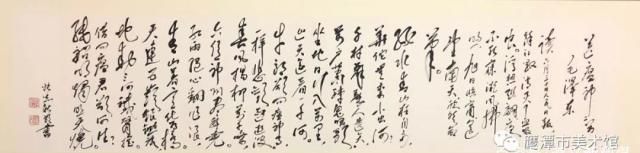 送瘟神二首
毛泽东
读六月三十日人民日报
余江县消灭了血吸虫
浮想联翩
夜不能寐微风拂
煦旭日临窗遥
望南天欣然命
笔
绿水青山枉自多
华佗无奈小虫何
千村薜荔人遗矢
万户萧疏鬼唱歌
坐地日行八万里
巡天遥看一千河
牛郎欲问瘟神事
一样悲欢逐逝波
春风杨柳万千条
六亿神州尽舜尧
红雨随心翻作浪
青山着意化为桥
天连五岭银锄落
地动三河铁臂摇
借问瘟君欲何往
纸船明烛照天烧
鹰潭市美术馆